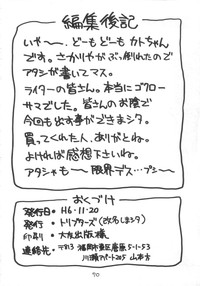 編集後記
いや〜〜、どーもどーもカトちゃん
です。さかりやがぶっ倒れたので
アタシが書いてマス。
ライターの皆さん。本当にゴクロー
サマでした。皆さんのお陰で
今回も出す事ができまシタ。
買ってくれた人、ありがとね。
よければ感想下さいね。
アタシャも〜〜限界デス…プシュ〜
おくづけ
発行日・H6・11・20
発行・トリプターズ(改名しまシタ)
印刷・大友出版様、
連絡先・〒813 福岡市東区唐原5-1-53
川瀬アパート205 山本方
70